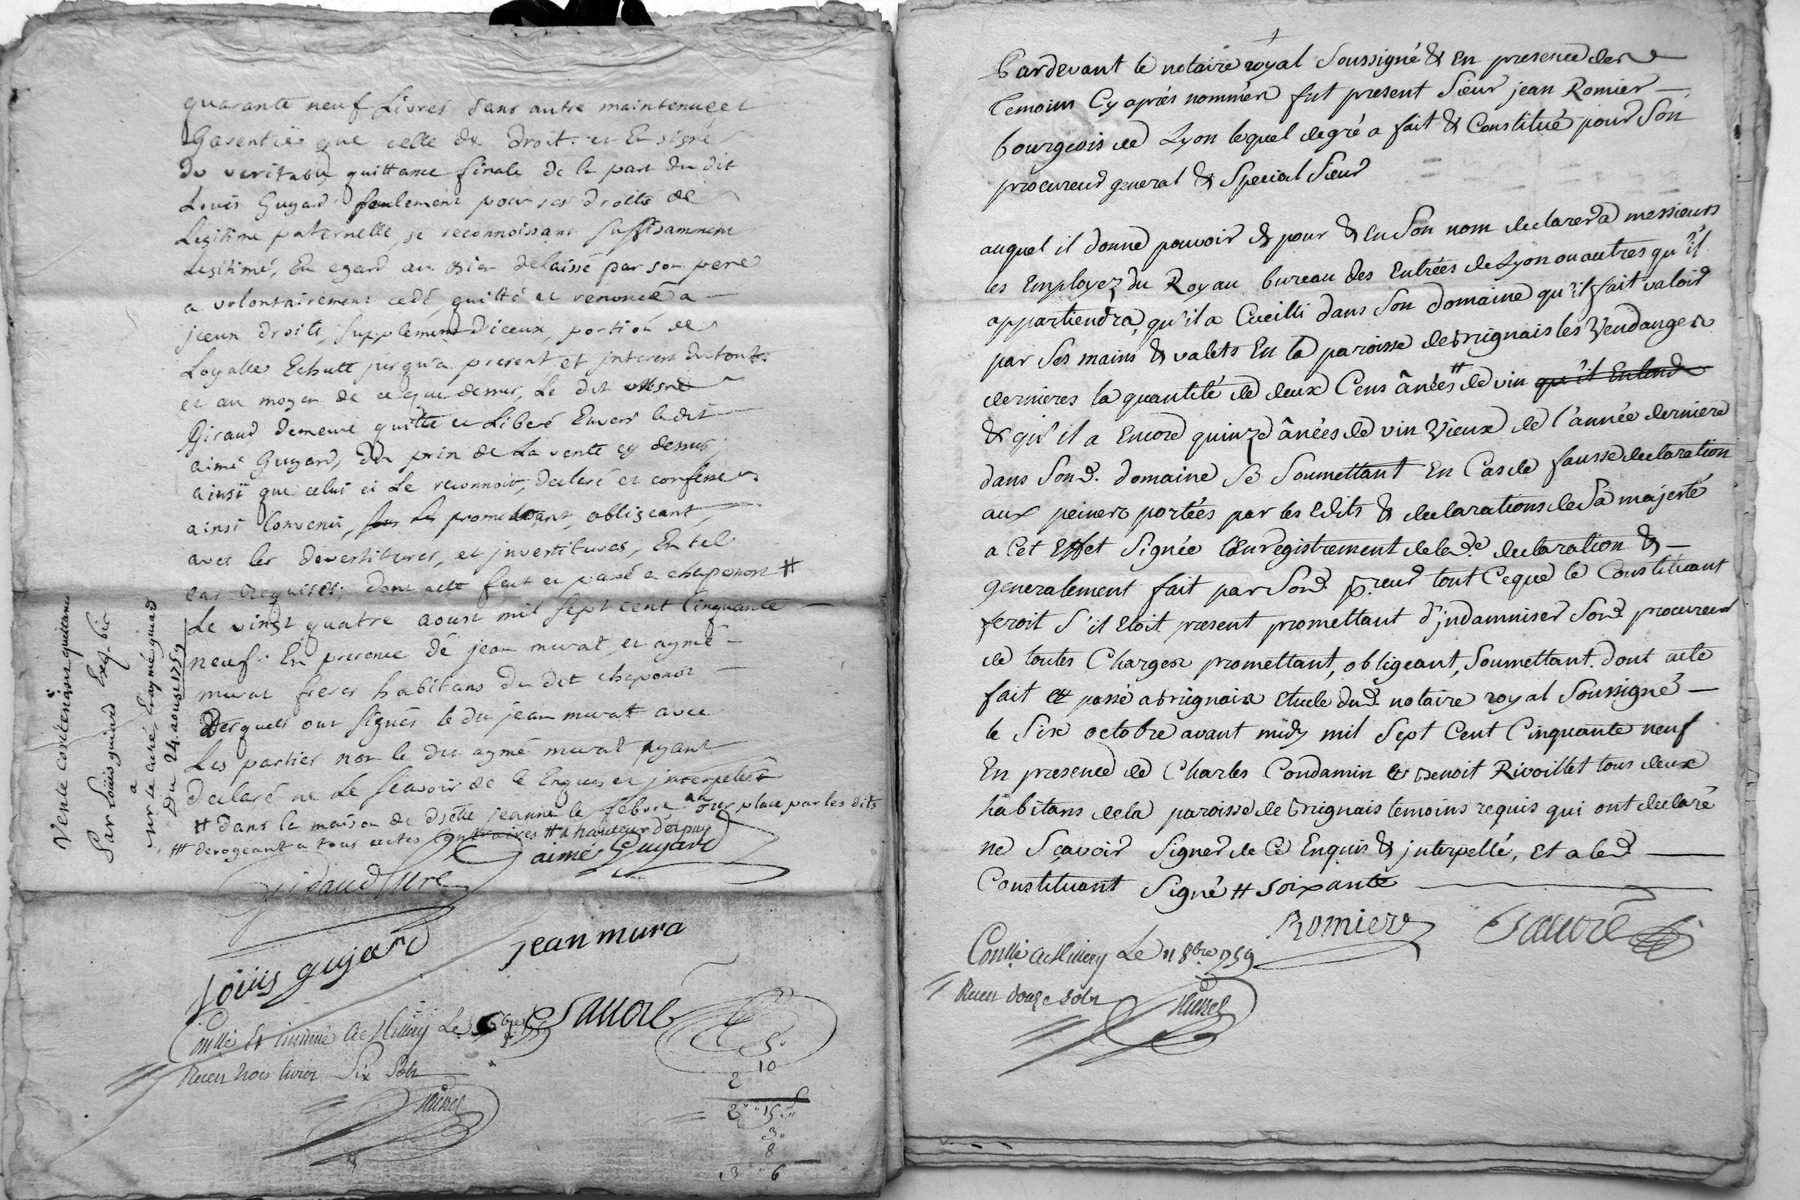 quarante neuf Livres sans autre maintenue et
Garentie que celle de droit. et En signe
de veritable quittance finale de la part du dit
Louis Guyard seulement pour ses droits de
Legitime paternelle se reconnoissant suffisamment
Legitimé, Eu egard au bien delaissé par son pere
a volontairement cedé, quitté et renoncé a
jceux droits, supplement diceux, portion de
Loyalle Echutt jusqu'a present et interest du tout.
et au moyen de ce que dessus, Le dit messre
Giraud demeure quitte et Liberé Envers ledit
aimé Guyard, du prix de La vente cy dessus,
ainsi que celui ci Le reconnoit, declare et confesse
ainsi Convenu, promettant, obligeant,
avec les devestitures, et jnvestitures, En tel
cas requises; dont acte fait et passé a chaponost #
Le vingt quatre aoust mil sept cent Cinquante
neuf: En presence de jean murat, et aymé
murat freres habitans du dit chaponost
desquels ont signés le du jean murat avec
Les parties non le du aymé murat pyant
declaré ne Le scavoir de ce Enquis et jnterpellé
# dans la maison de jeanne le febvre sur place par les dits
# derogeant a tous actes contraires # a hauteur d'espuy
giraud Curé
aimé Guyard
Louis gujard
jean mura
Sauoré
Conllé et insinué A Millery Le 8bre 1759
Receu trois livres Six Sols
5
10
2
2 " 15
3
8
3 " 6
Vente contenant quittance
Par Louis guiard
a
Du 24 aoust 1759
Pardevant le notaire royal Soussigné & en presence des
Temoins Cy après nommés fut present Sieur jean Romier
bourgeois de Lyon lequel de gré a fait & Constitué pour Son
procureur general & Special Sieur
auquel il donne pouvoir de pour & en Son nom declarer a messieurs
les Employez du Roy au bureau des Entrées de Lyon ou autres qu'il
appartiendra, qu'il a Cueilli dans Son domaine qu'il fait valoir
par Ses mains & valets En la paroisse de brignais les Vendanges
dernieres la quantité de deux Cens ânées # de vin qu'il Entend
& qu'il a Encore quinze ânées de vin Vieux de l'année derniere
dans Sond. domaine Se Soumettant En Cas de fausse declaration
aux peines portées par les Edits & declarations de Sa majesté
a Cet Effet Signée L'enregistrement de lade declaration &
generalement fait par Sond. preur tout Ceque le Constituant
feroit S'il Etoit present promettant d'jndamniser Sond procureur
de toutes Charges promettant, obligeant, Soumettant. dont acte
fait et passé a brignais Etude dud. notaire royal Soussigné
le Six octobre avant midy mil Sept Cent Cinquante neuf
En presence de Charles Condamin & benoit Rivoillet tous deux
habitans de la paroisse de brignais temoins requis qui ont declaré
ne Sçavoir Signer de Ce Enquis & jnterpellé, Et a led
Constituant Signé # Soixante
Romier
Sauoré
Conllé A Millery Le 11 8bre 1759
Receu douze Sols